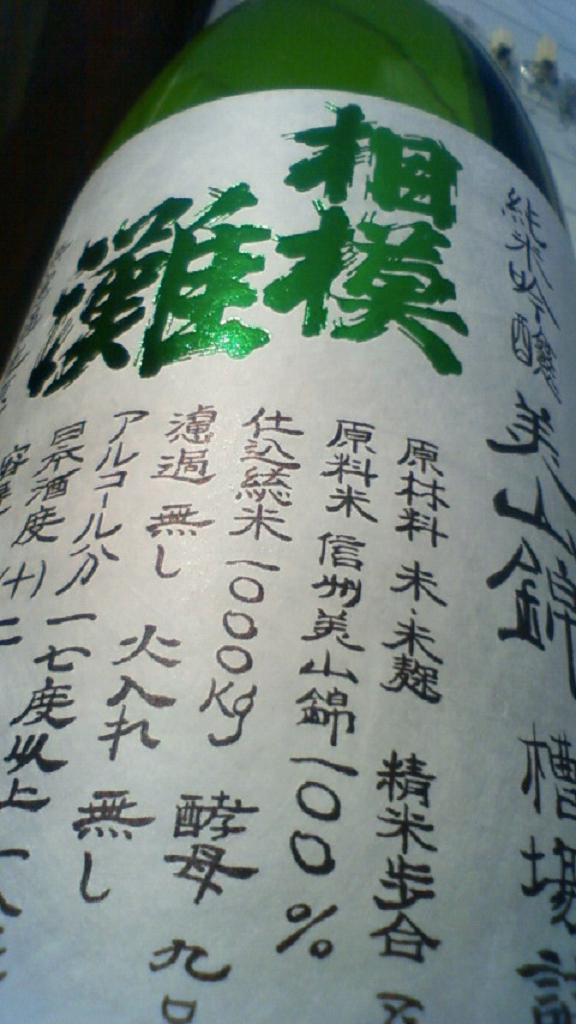 相模
灘
純米吟醸 美山錦 槽場詰
原材料 米・米麹 精米歩合
原料米 信州美山錦 100%
仕込総米 1000kg 酵母 九
濾過 無し 火入れ 無し
アルコール分 一七度以上 一八
日本酒度 (+) 二